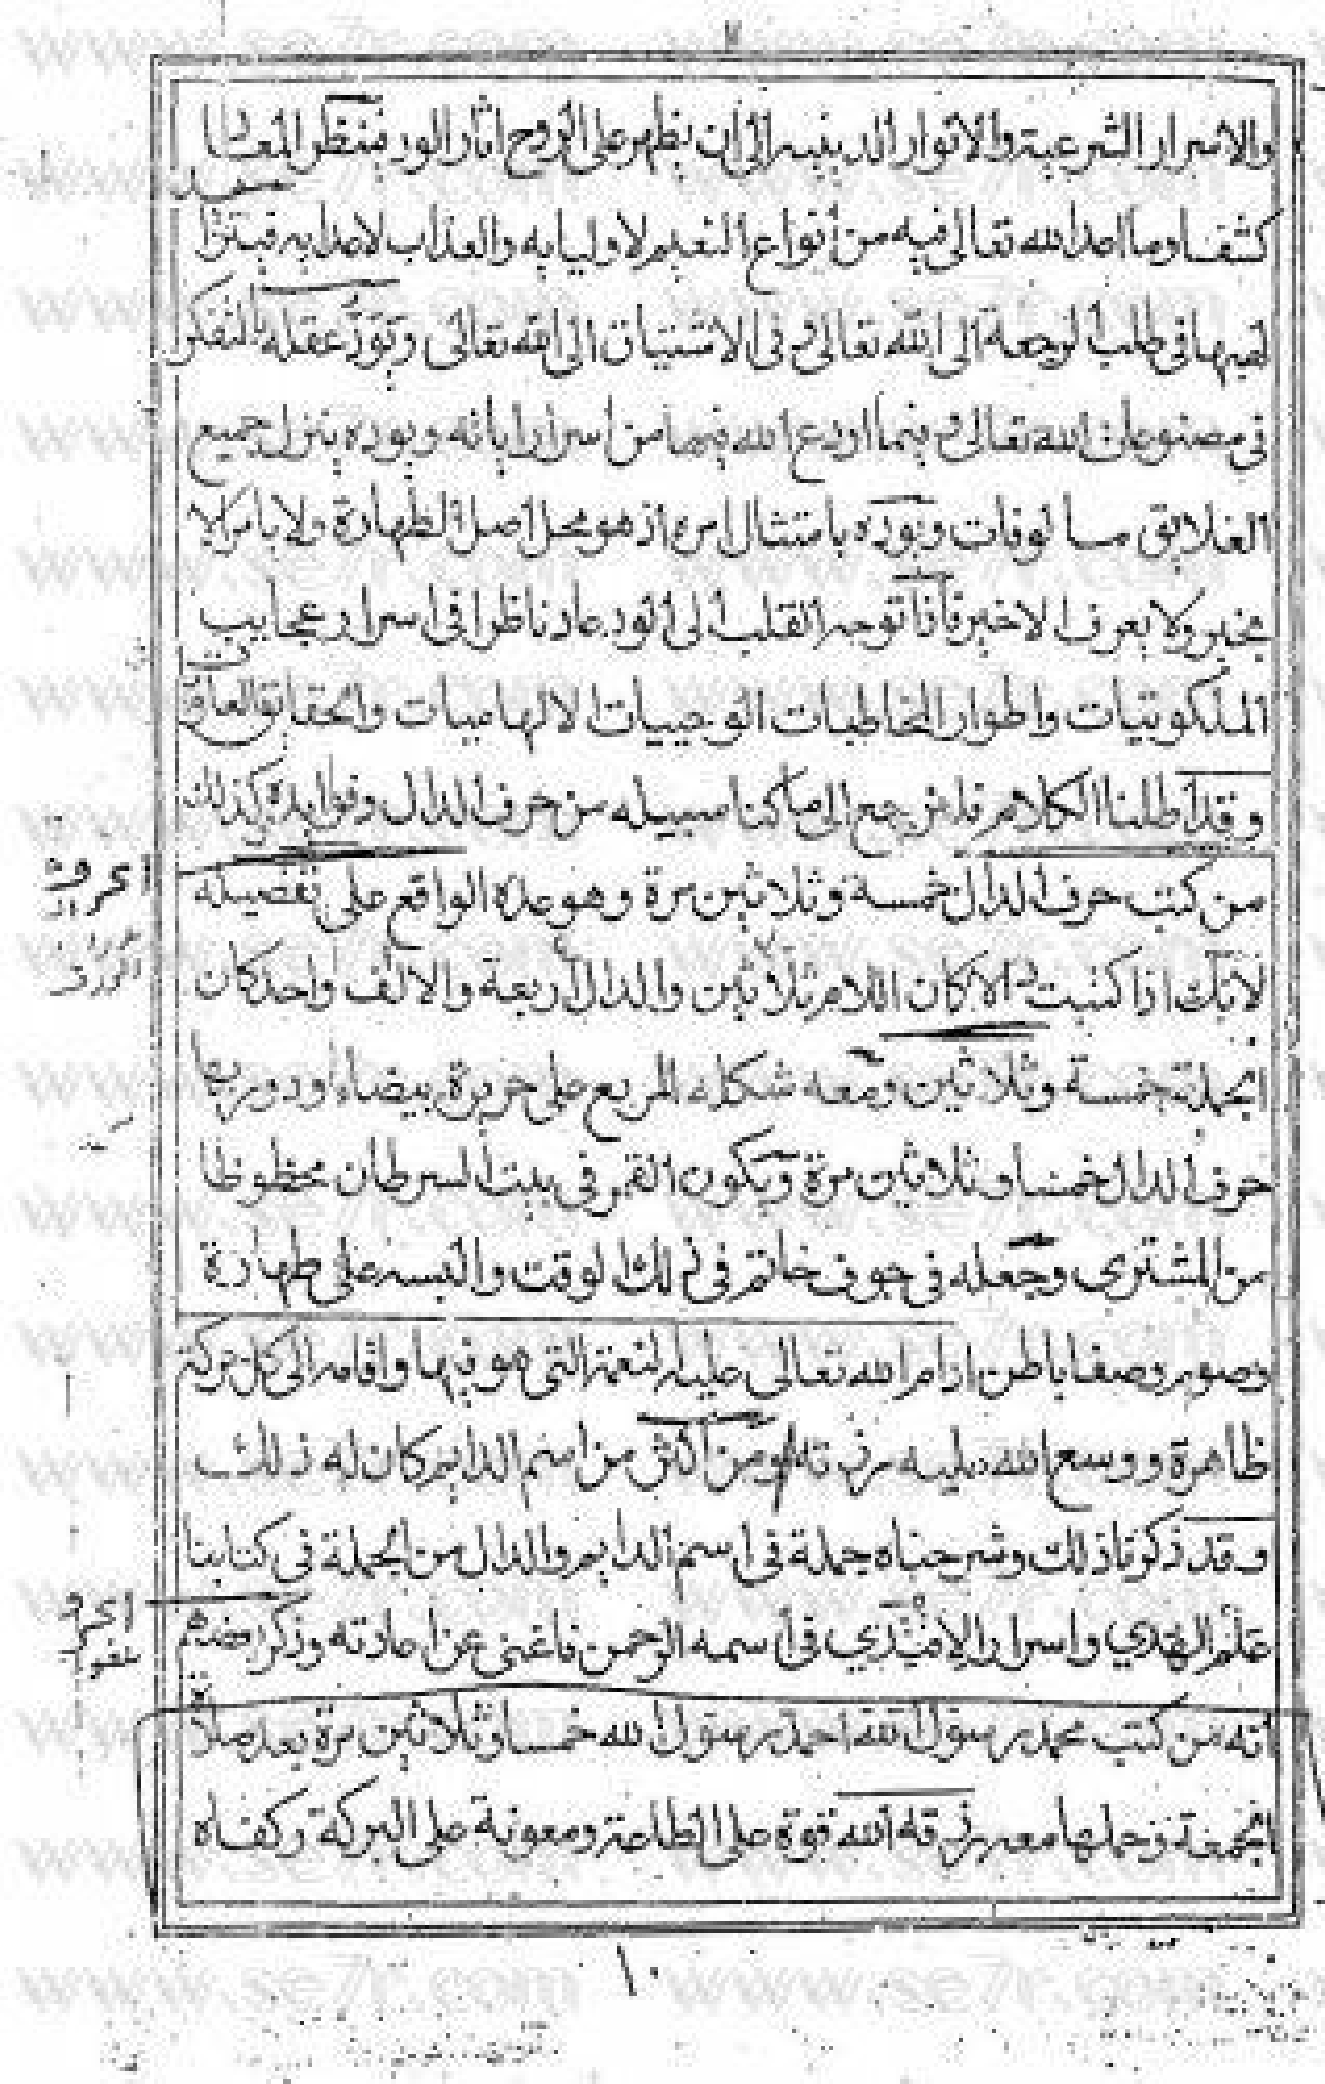 والاسرار الشرعية والانوار الدينيه الى ان يظهر على الروح اثار الود فينظر المعاد
كشفا وما اعد الله تعالى فيه من أنواع النعيم لاوليايه والعذاب لاعدايه
فيها في طلب الرجعة الى الله تعالى وفي الاشتياق الى الله تعالى وتودد عقله بالتفكر
في مصنوعات الله تعالى وفيما اودع الله فيها من اسرار اياته وتودده بنزل جميع
العلايق وتودده بامتثال امره اذ هو محل اصل الطهارة ولا يامر الا
بخير ولا يعرف الا خير فاذا توجه القلب الى الود عاد ناظرا في اسرار عجايب
الملكوتيات واطوار المخاطبات الالهاميات والحقايق
وقد اطلنا الكلام فلنرجع الى ما كنا سبيله من حرف الدال وفوايده كذلك
من كتب حرف الدال خمسة وثلاثين مرة وهو عدده الواقع على تفصيله
لأنك اذا كتبت دال كان اللام ثلاثين والدال أربعة والالف واحد كان
الجملة خمسة وثلاثين ومعه شكله المربع على حريرة بيضاء ودور بها
حرف الدال خمسا وثلاثين مرة ويكون القمر في بيت السرطان محظوظا
من المشتري وجعله في جوف خاتم في ذلك الوقت والبسه على طهارة
وصوم وصفا باطن ادام الله تعالى عليه النعمة التي هو فيها واقامه الى كل حركة
ظاهرة ووسع الله عليه رزقه ومن أكثر من اسم الدايم كان له ذلك
وقد ذكرنا ذلك وشرحناه جملة في اسم الدايم والدال من الجملة في كتابنا
علم الهدي واسرار الاهتدي في أسمه الرحمن فاغنى عن اعادته وذكر بعضهم
انه من كتب محمد رسول الله احمد رسول الله خمسا وثلاثين مرة بعد صلاة
الجمعة وحملها معه رزقه الله قوة على الطاعة ومعونة على البركة وكفاه
١٠